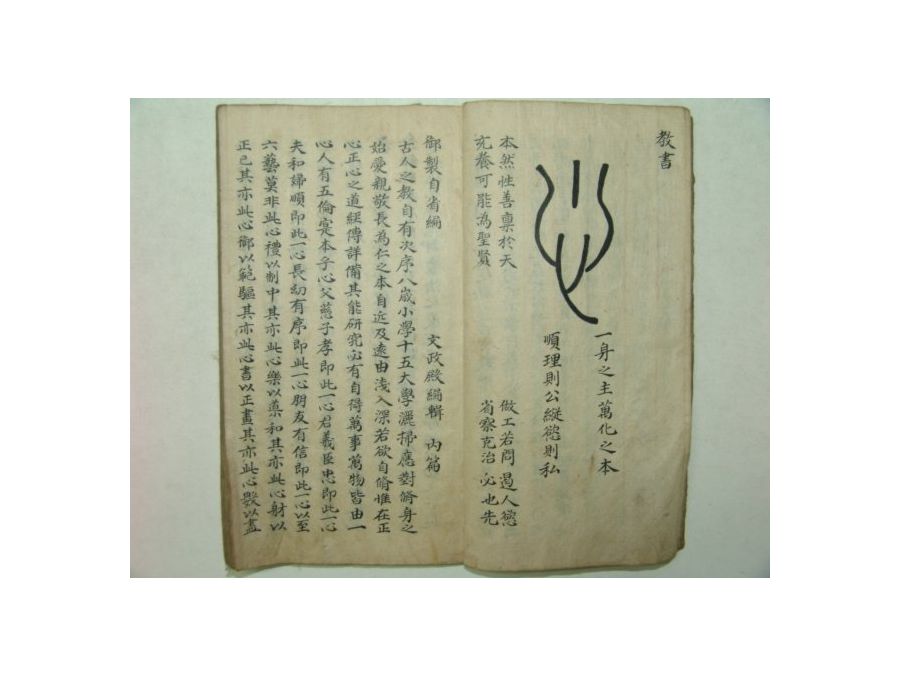 教書
心
一身之主萬化之本
順理則公縱慾則私
本然性善禀於天
充養可能為聖賢
做工若問遏人慾
省察克治必也先
御製自省編 文政殿編輯 內篇
古人之教自有次序八歲小學十五大學灑掃應對脩身之
始愛親敬長為仁之本自近及遠由淺入深若欲自脩惟在正
心正心之道經傳詳備其能研究必有自得萬事萬物皆由一
心人有五倫寔本乎心父慈子孝即此一心君義臣忠即此一心
夫和婦順即此一心長幼有序即此一心朋友有信即此一心以至
六藝莫非此心禮以制中其亦此心樂以導和其亦此心射以
正己其亦此心御以範驅其亦此心書以正畫其亦此心數以盡